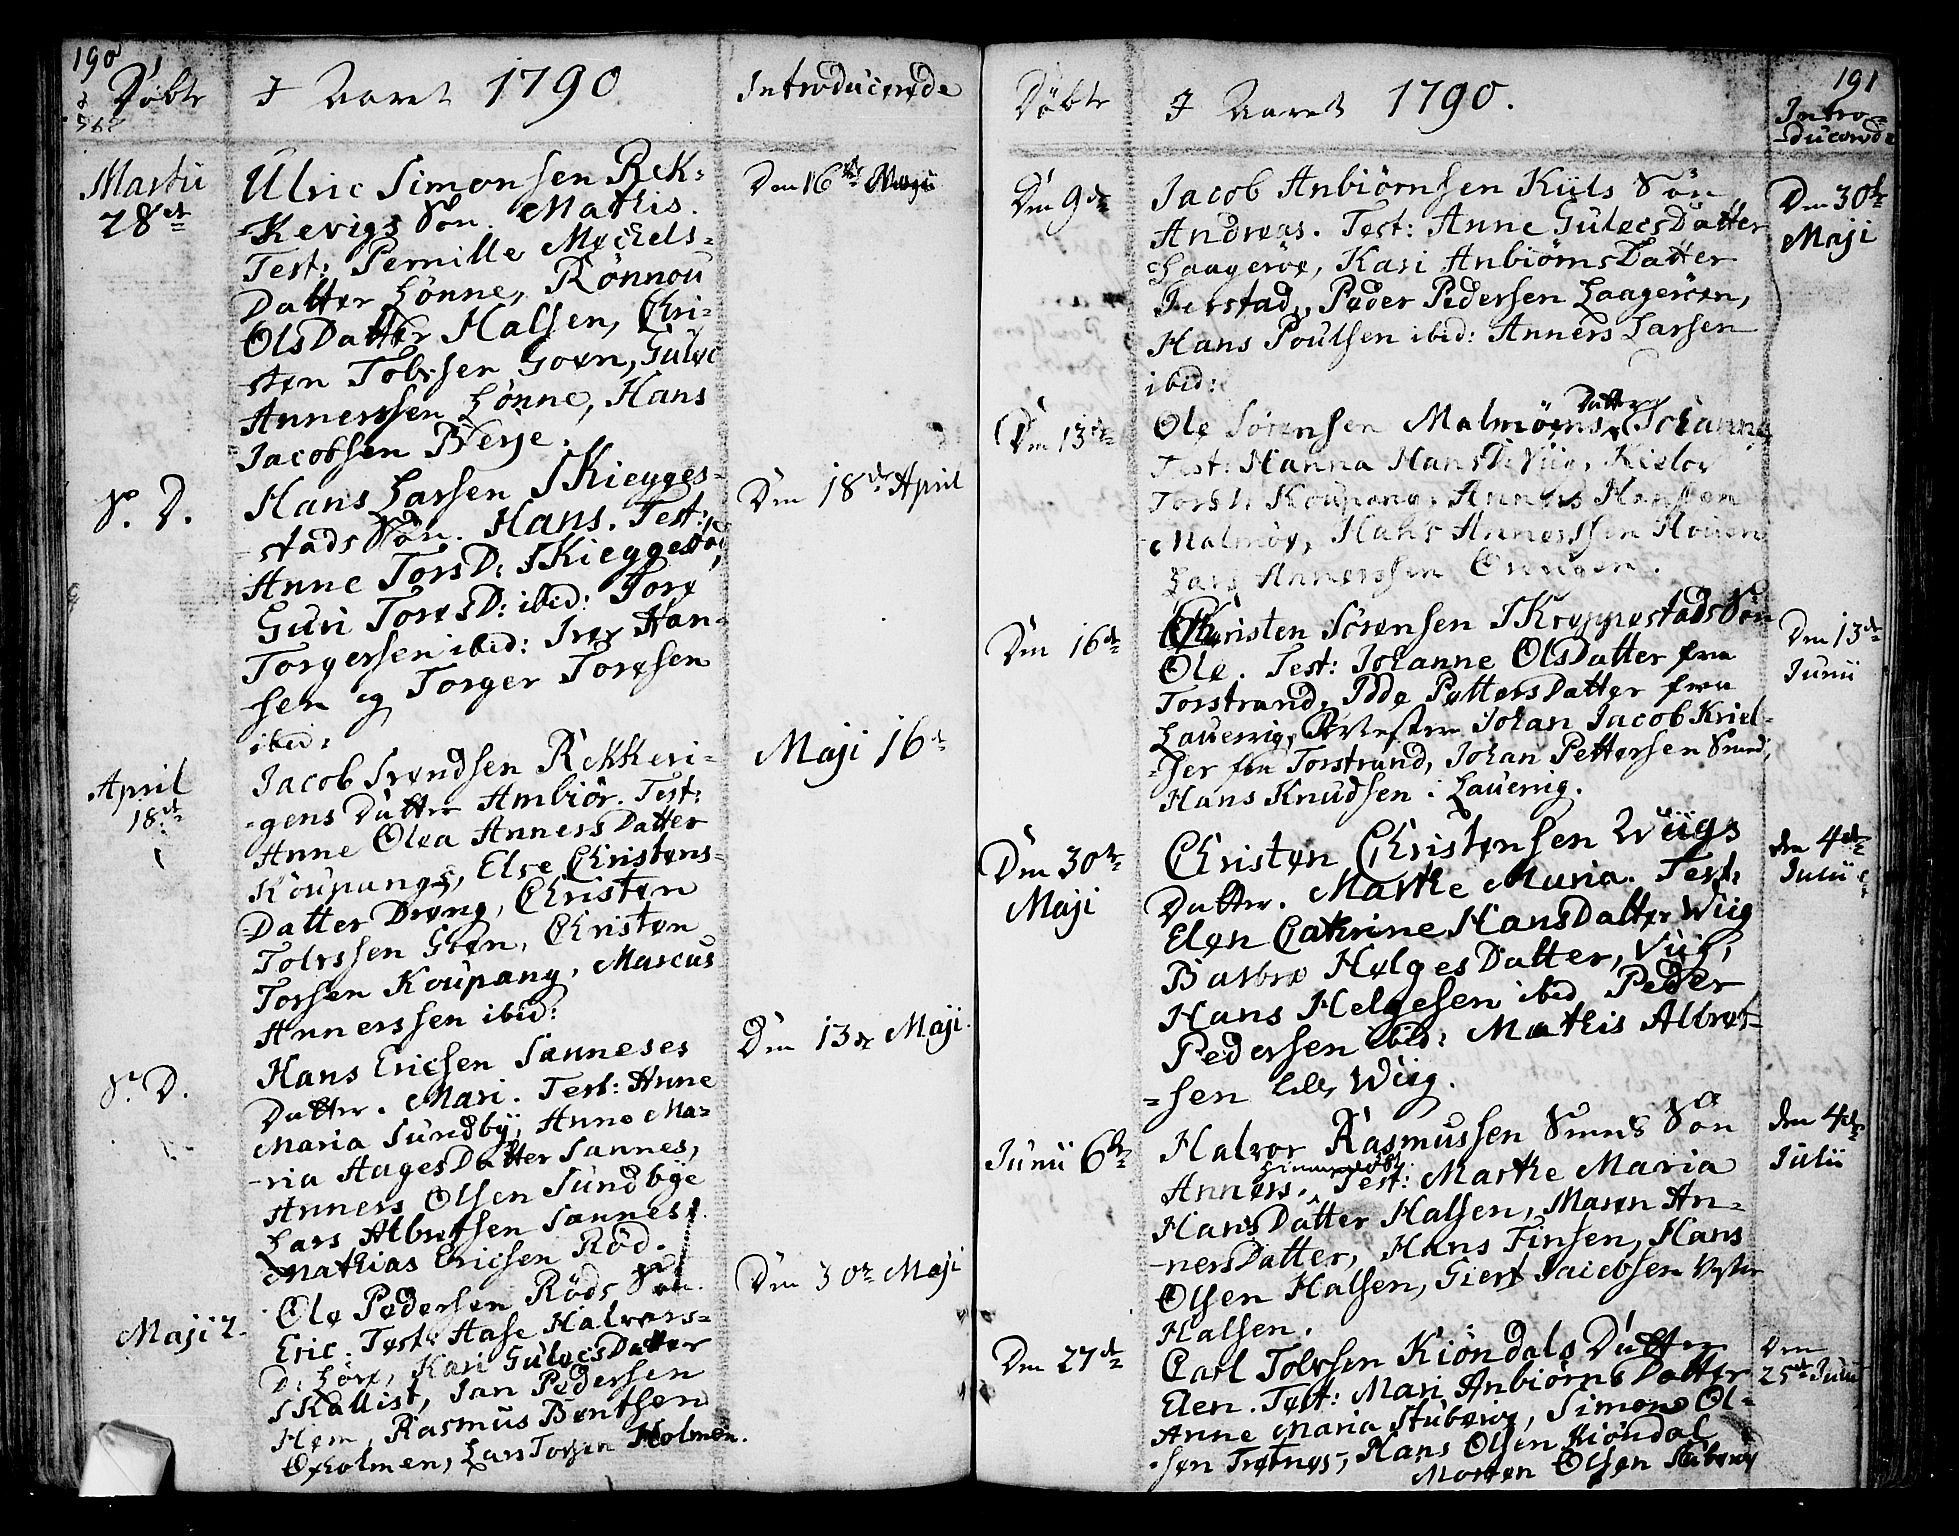 190
Døbte
I Aaret 1790
Introducerede
Martii
28de
Ulric Simonsen Rek-
-Kevigs Søn. Mathis.
Test: Pernille Mechels-
Datter Lønne, Rønnou
OlsDatter Halsen, Chri-
-sten Tolvsen Goen, Gulvc
Annerssen Lønne, Hans
Jacobsen Berje.
Den 16de Maji
S. D.
Hans Larsen SKiegges-
-stads Søn. Hans. Test:
Anne TorsD: SKieggestad,
Guri ToresD: ibid: Tore
Torgersen ibid: Iver Han-
sen og Torger Toresen
ibid:
Den 18de April
April
18de
Jacob Svendsen Rekkevi-
-gens Datter Ambiør. Test:
Anne Olea AnnersDatter
Koupangs, Else Christens-
Datter Dreng, Christen
Tolvssen Goen, Christen
Torssen Koupang, Marcus
Annerssen ibid:
Maji 16de
S. D.
Hans Ericsen Sanneses
Datter. Mari. Test: Anne
Maria Sundby, Anne Ma-
-ria AagesDatter Sannes,
Anners Olsen Sundbye
Lars Albretsen Sannes,
Mathias Ericsen Rød.
Den 13de Maji.
Maji 2.
Ole Pedersen Røds Søn.
Eric. Test: Aase Halvors-
D: Løve, Kari GulvcsDatter
SKallist, Jan Pedersen
Hem, Rasmus Bentsen
Oxholmen, Lars Torsen Holmen.
Den 30te Maji
191
Døbte
I Aaret 1790.
Intro-
-ducerede
Den 9de
Jacob Anbiørnsen Kiils Søn
Andreas. Test: Anne GulvcsDatter
Laagerøe, Kari AnbiørnsDatter
Ferstad, Peder Pedersen Laagerøen,
Hans Poulsen ibid: Anners Larsen
ibid:
Den 30te
Maji
Den 13de
Ole Sørensen Malmøens Datter Johanne
Test: Hanna HansD: Viig, Kielov
TorsD: Koupang, Anners Hansen
Malmøe, Hans Annerssen Houen
Lars Annerssen
Den 16de
Christen Sørensen SKreppestads Søn
Ole. Test: Johanne OlsDatter fra
Torstrand, Idde PettersDatter fra
Laurvig, Johan Jacob Kriel-
-ser fra Torstrand, Johan Pettersen Smed,
Hans Knudsen i Laurvig.
Den 13de
Junii
Den 30te
Maji
Christen Christensen Wiigs
Datter. Marthe Maria. Test:
Elen Cathrine HansDatter Wiig
Barbro HelgesDatter, Viig,
Hans Helgesen ibid, Peder
Pedersen ibid: Mathis Albret-
-sen lille Wiig.
den 4de
Julii
Junii 6te
Halvor Rasmussen Smeds Søn
Anners. Test: Marthe Maria
HansDatter Halsen, Maren An-
-nersDatter, Hans Finsen, Hans
Olsen Halsen, Giert Jacobsen Vester
Halsen.
den 4de
Julii
Den 27de
Carl Tolvsen Kiøndals Datter
Elen. Test: Mari AnbiørnsDatter
Anne Maria Stuberøe, Simon Ol-
-sen Trætnes, Hans Olsen Kiøndal
Morten Olsen Stuberøe
Den
25de Julii